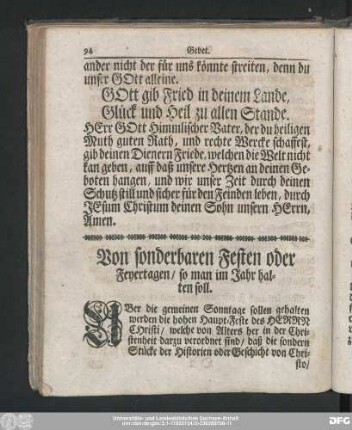 94 Gebet.
ander nicht der für uns könnte streiten, denn du
unser GOtt alleine.
GOtt gib Fried in deinem Lande,
Glück und Heil zu allen Stande.
HErr GOtt Himmlischer Vater, der du heiligen
Muth guten Rath, und rechte Wercke schaffest,
gib deinen Dienern Friede, welchen die Welt nicht
kan geben, auff daß unsere Hertzen an deinen Ge-
boten hangen, und wir unser Zeit durch deinen
Schutz still und sicher für den Feinden leben, durch
JEsum Christum deinen Sohn unsern HErrn,
Amen.
Von sonderbaren Festen oder
Feyertagen/ so man im Jahr hal-
ten soll.
UBer die gemeinen Sonntage sollen gehalten
werden die hohen Haupt-Feste des HERRN
CHristi/ welche von Alters her in der Chri-
stenheit darzu verordnet sind/ daß die sondern
Stücke der Historien oder Geschicht von Chri-
sto/
Universitäts- und Landesbibliothek Sachsen-Anhalt
DFG